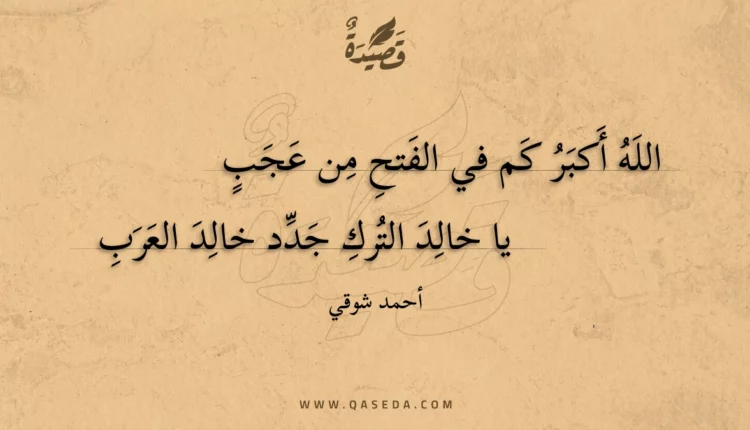 قَصِيدَةٌ
اللَهُ أَكبَرُ كَم في الفَتحِ مِن عَجَبٍ
يا خالِدَ التُركِ جَدِّد خالِدَ العَرَبِ
أحمد شوقي
WWW.QASEDA.COM